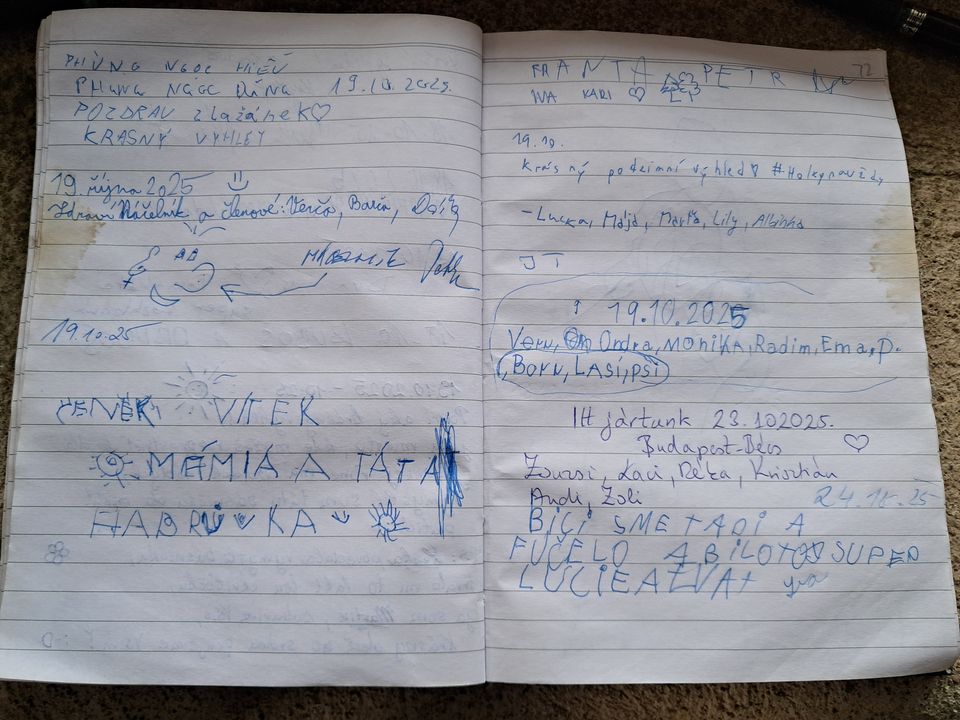 PHÙNG NGOC HIẾU
PHUNG NGOC 19.10.2025.
POZDRAV zlažánek♡
KRASNÝ VYHLEY
19. října 2025
Zdraví Náčelník a členové: Verča, Barča,
NÁČELNÍK
19.10.25
ČENĚK VÍTEK
MÁMIA A TÁTA
HABRŮVKA
72
FRANTA PETR
IVA KARI ♡
19.10.
Krásný podzimní výhled #Holkynavždy
- Lucka, Mája, Marťa, Lily, Albinka
JT
19.10.2025
Veru, Ondra, MONIKA, Radim, Ema, p.
BORU, LASI, PSI
Itt jártunk 23.102025.
Budapest-Bécs ♡
Zsuzsi, Laci, Réka, Krisztián
Andi, Zoli 24.10.25
BILI SME TADI A
FUČELO A BILOTO SUPER